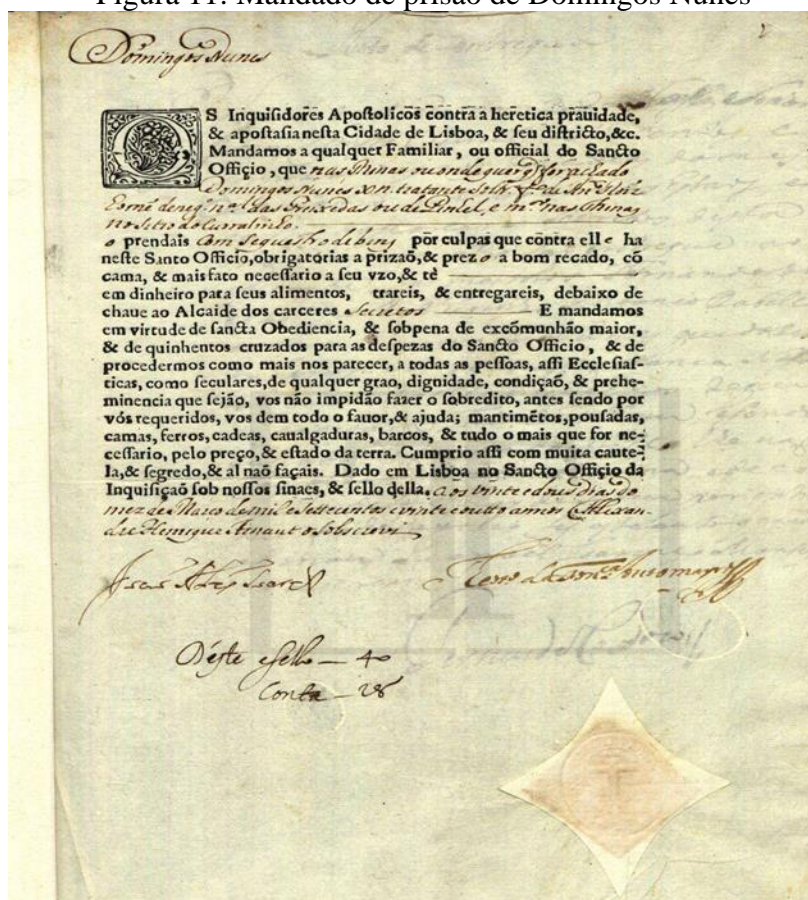 Figura 11: Mandado de prisão de Domingos Nunes
Domingos Nunes
OS Inquiſidores Apoſtolicos contra a heretica prauidade,
& apoſtaſia neſta Cidade de Lisboa, & ſeu diſtricto,&c.
Mandamos a qualquer Familiar, ou official do Sancto
Offiçio, que nas Minas ou onde quer q̃ for achado
Domingos Nunes xn tratante Solrº fº de
nal das Freixedas ou de Pinhel, e mor nas Minas
no Sitio do Curralinho.
o prendais com sequestro de bens por culpas que contra elle ha
neſte Santo Officio,obrigatorias a prizaõ,& prezo a bom recado, cõ
cama, & mais fato neceſſario a ſeu vzo,& tè
em dinheiro para ſeus alimentos, trareis, & entregareis, debaixo de
chaue ao Alcaide dos carceres Secretos E mandamos
em virtude de ſancta Obediencia, & ſobpena de excõmunhão maior,
& de quinhentos cruzados para as deſpezas do Sancto Officio, & de
procedermos como mais nos parecer, a todas as peſſoas, aſſi Eccleſiaſ-
ticas, como ſeculares,de qualquer grao, dignidade, condiçaõ, & prehe-
minencia que ſejão, vos não impidão fazer o ſobredito, antes ſendo por
vós requeridos, vos dem todo o fauor,& ajuda; mantimẽtos,pouſadas,
camas, ferros, cadeas, caualgaduras, barcos, & tudo o mais que for ne-
ceſſario, pelo preço,& eſtado da terra. Cumprio aſſi com muita caute-
la,& ſegredo,& al naõ façais. Dado em Lisboa no Sancto Offiçio da
Inquiſiçaõ ſob noſſos ſinaes, & ſello della. aos vinte e dous dias do
mez de Março de mil e Settecentos e vinte e outto annos Alixan-
dre Henrique Arnaut o Sobscrevi
Deste e sello — 40
Conta — 28